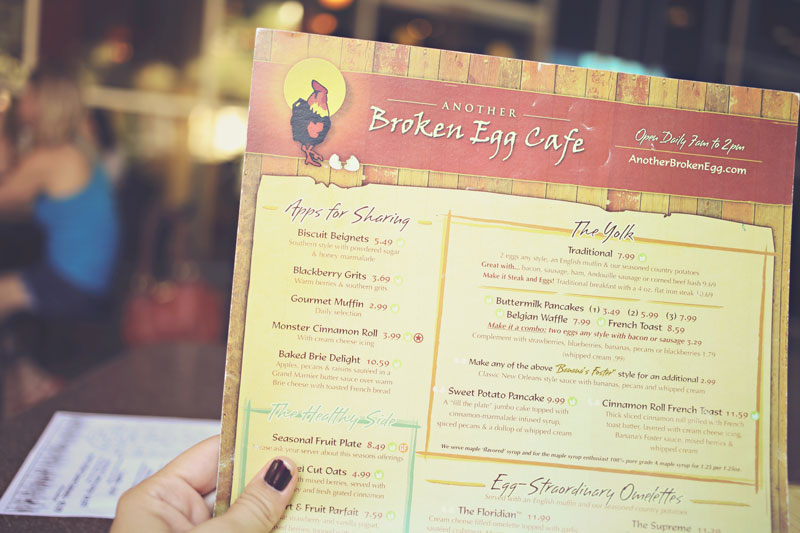 ANOTHER
Broken Egg Cafe
Open Daily 7am to 2pm
AnotherBrokenEgg.com
Apps for Sharing
Biscuit Beignets 5.49
Southern style with powdered sugar
& honey marmalade
Blackberry Grits 3.69
Warm berries & southern grits
Gourmet Muffin 2.99
Daily selection
Monster Cinnamon Roll 3.99
With cream cheese icing
Baked Brie Delight 10.59
Apples, pecans & raisins sauteed in a
Grand Marnier butter sauce over warm
Brie cheese with toasted French bread
The Healthy Side
Seasonal Fruit Plate 8.49
ask your server about this seasons offerings
Cut Oats 4.99
with mixed berries, served with
and fresh grated cinnamon
& Fruit Parfait 7.59
strawberry and vanilla yogurt
The Yolk
Traditional 7.99
2 eggs any style, an English muffin & our seasoned country potatoes
Great with... bacon, sausage, ham, Andouille sausage or corned beef hash 9.69
Make it Steak and Eggs! Traditional breakfast with a 4 oz. flat iron steak 12.69
Buttermilk Pancakes (1) 3.49 (2) 5.99 (3) 7.99
Belgian Waffle 7.99 French Toast 8.59
Make it a combo: two eggs any style with bacon or sausage 3.29
Complement with strawberries, blueberries, bananas, pecans or blackberries 1.79
(whipped cream .99)
Make any of the above "Banana's Foster" style for an additional 2.99
Classic New Orleans style sauce with bananas, pecans and whipped cream
Sweet Potato Pancake 9.99
A "fill the plate" jumbo cake topped with
cinnamon-marmalade infused syrup,
spiced pecans & a dollop of whipped cream
Cinnamon Roll French Toast 11.59
Thick sliced cinnamon roll grilled with French
toast batter, layered with cream cheese icing,
Banana's Foster sauce, mixed berries &
whipped cream
We serve maple 'flavored' syrup and for the maple syrup enthusiast 100% pure grade A maple syrup for 1.25 per 1.25oz.
Egg-Straordinary Omelettes
Served with an English muffin and our seasoned country potatoes
The Floridian™ 11.99
Cream cheese filled omelette topped with garlic
The Supreme